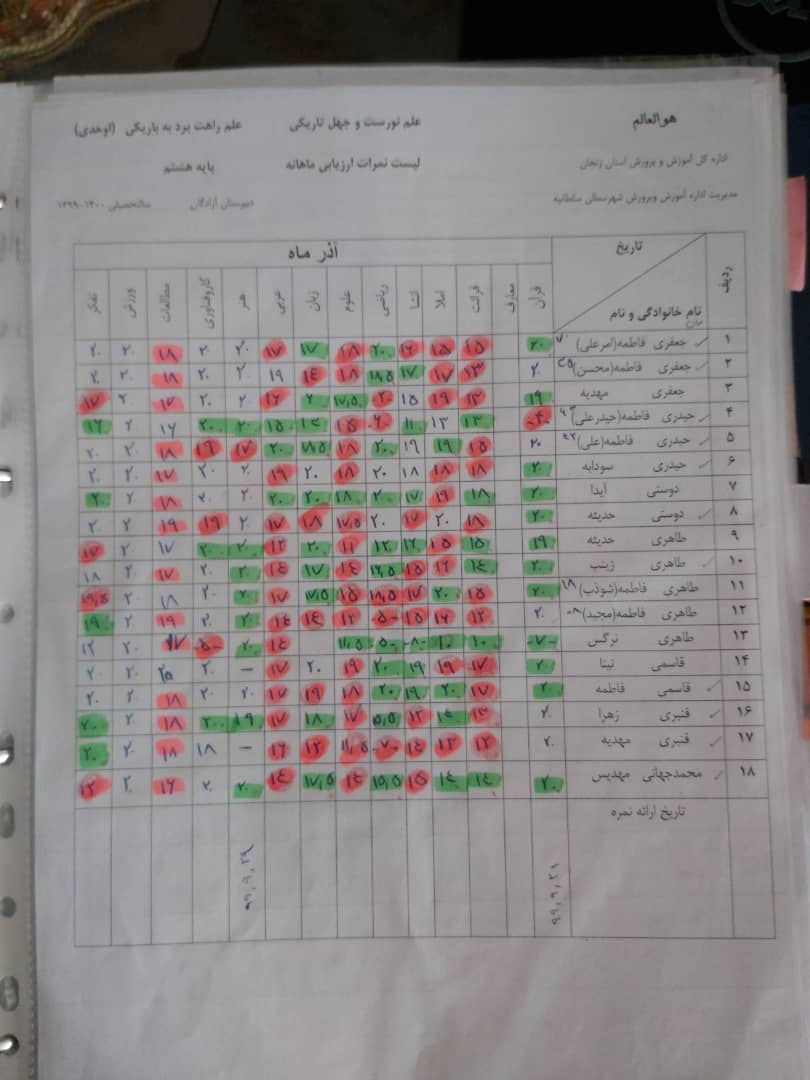 هوالعالم
علم نورست و جهل تاریکی
علم راهت برد به باریکی (اوحدی)
اداره کل آموزش و پرورش استان زنجان
لیست نمرات ارزیابی ماهانه
پایه هشتم
مدیریت اداره آموزش وپرورش شهرسطان سلطانیه
دبیرستان آزادگان
سالتحصیلی ۱۴۰۰-۱۳۹۹
ردیف تاریخ آذر ماه
نام خانوادگی و نام قرآن معارف قرائت املا انشا ریاضی علوم زبان عربی هنر کاروفناوری مطالعات ورزش تفکر
۱ جعفری فاطمه(امرعلی) ۲۰ ۱۵ ۱۵ ۱۶ ۲۰ ۱۸ ۱۷ ۱۷ ۲۰ ۲۰ ۱۸ ۲۰ ۲۰
۲ جعفری فاطمه(محسن) ۲۰ ۱۳ ۱۷ ۱۷ ۱۸,۵ ۱۸ ۱۴ ۱۹ ۲۰ ۲۰ ۱۸ ۲۰ ۲۰
۳ جعفری مهدیه ۱۹ ۱۳ ۱۹ ۱۵ ۱۷,۵ ۱۶ ۲۰ ۲۰ ۱۷ ۲۰ ۱۷
۴ حیدری فاطمه(حیدرعلی) ۱۳ ۱۳ ۱۱ ۱۵ ۱۵ ۲۰ ۲۰ ۱۶ ۲۰ ۱۶
۵ حیدری فاطمه(علی) ۲۰ ۱۵ ۱۹ ۱۹ ۲۰ ۱۸ ۱۸,۵ ۲۰ ۱۷ ۱۹ ۱۸ ۲۰ ۲۰
۶ حیدری سودابه ۲۰ ۱۸ ۱۸ ۱۸ ۲۰ ۱۸ ۲۰ ۱۹ ۲۰ ۲۰ ۱۷ ۲۰ ۲۰
۷ دوستی آیدا ۲۰ ۱۸ ۱۹ ۱۷ ۲۰ ۱۸ ۲۰ ۲۰ ۲۰ ۲۰ ۱۸ ۲۰ ۲۰
۸ دوستی حدیثه ۲۰ ۱۸ ۲۰ ۱۷ ۲۰ ۱۷,۵ ۱۸ ۱۷ ۲۰ ۱۹ ۱۹ ۲۰ ۲۰
۹ طاهری حدیثه ۱۹ ۱۵ ۱۵ ۱۲ ۱۲ ۱۱ ۲۰ ۱۲ ۲۰ ۲۰ ۱۷ ۲۰ ۱۷
۱۰ طاهری زینب ۲۰ ۱۴ ۱۶ ۱۵ ۱۴ ۱۷ ۱۴ ۲۰ ۲۰ ۱۷ ۲۰ ۱۸
۱۱ طاهری فاطمه(شوذب) ۲۰ ۱۵ ۲۰ ۱۷ ۱۸,۵ ۱۵ ۱۷,۵ ۱۷ ۲۰ ۲۰ ۱۸ ۲۰ ۱۹,۵
۱۲ طاهری فاطمه(مجید) ۲۰ ۱۲ ۱۶ ۱۵ ۵ ۱۲ ۱۴ ۱۴ ۲۰ ۲۰ ۱۹ ۲۰ ۱۹
۱۳ طاهری نرگس ۷ ۱۰ ۱۰ ۸ ۵ ۱۱,۵ ۱۴ ۲۰ ۵ ۱۷ ۲۰ ۱۲
۱۴ قاسمی تینا ۲۰ ۱۷ ۱۹ ۱۹ ۲۰ ۱۹ ۲۰ ۱۷ – ۲۰ ۲۰ ۲۰ ۲۰
۱۵ قاسمی فاطمه ۲۰ ۱۷ ۲۰ ۱۹ ۲۰ ۱۸ ۱۹ ۱۷ ۲۰ ۲۰ ۱۸ ۲۰ ۲۰
۱۶ قنبری زهرا ۲۰ ۱۳ ۱۴ ۱۳ ۱۷ ۱۸ ۱۷ ۱۹ ۲۰ ۱۸ ۲۰ ۲۰
۱۷ قنبری مهدیه ۲۰ ۱۲ ۱۳ ۱۴ ۷ ۱۱,۵ ۱۲ ۱۶ – ۱۸ ۱۸ ۲۰ ۲۰
۱۸ محمدجهانی مهدیس ۲۰ ۱۴ ۱۴ ۱۵ ۱۹,۵ ۱۴ ۱۷,۵ ۱۴ ۲۰ ۲۰ ۱۶ ۲۰ ۱۳
تاریخ ارائه نمره ۹۹,۹,۲۹